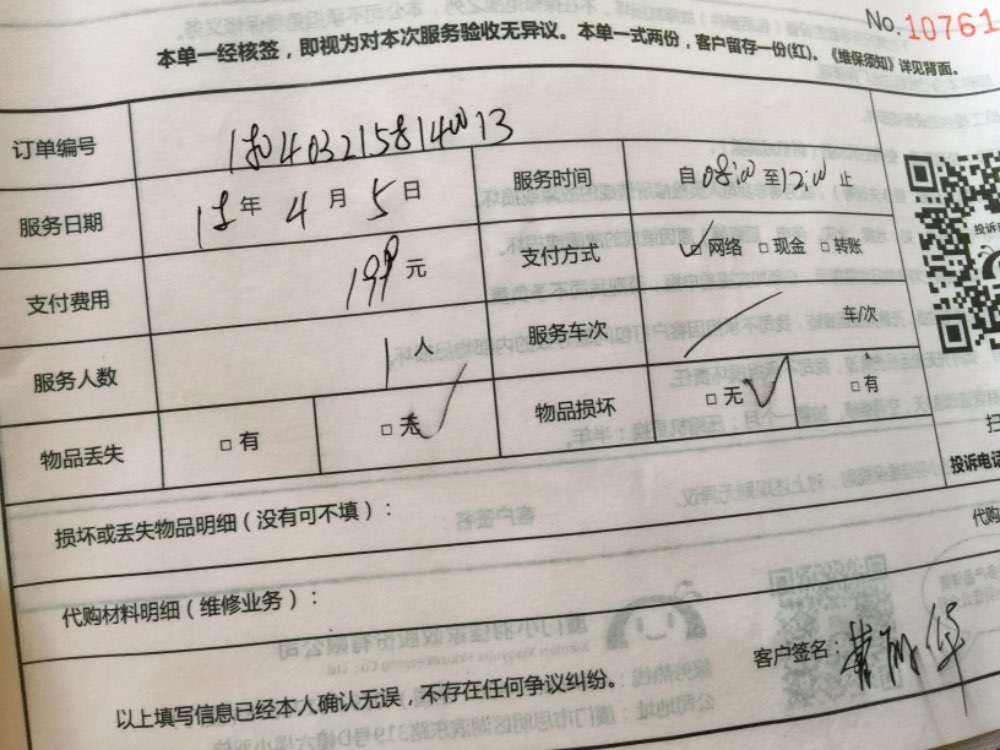 No.10761
本单一经核签，即视为对本次服务验收无异议。本单一式两份，客户留存一份(红)。《维保须知》详见背面。
订单编号
服务日期 年 4 月 5 日 服务时间 自 08:00 至 12:00 止
支付费用 199 元 支付方式 □ 网络 □ 现金 □ 转账
服务人数 1 人 服务车次 车/次
物品丢失 □ 有 □ 无 物品损坏 □ 无 □ 有
投诉电话
损坏或丢失物品明细（没有可不填）：
代购
代购材料明细（维修业务）：
以上填写信息已经本人确认无误，不存在任何争议纠纷。 客户签名：